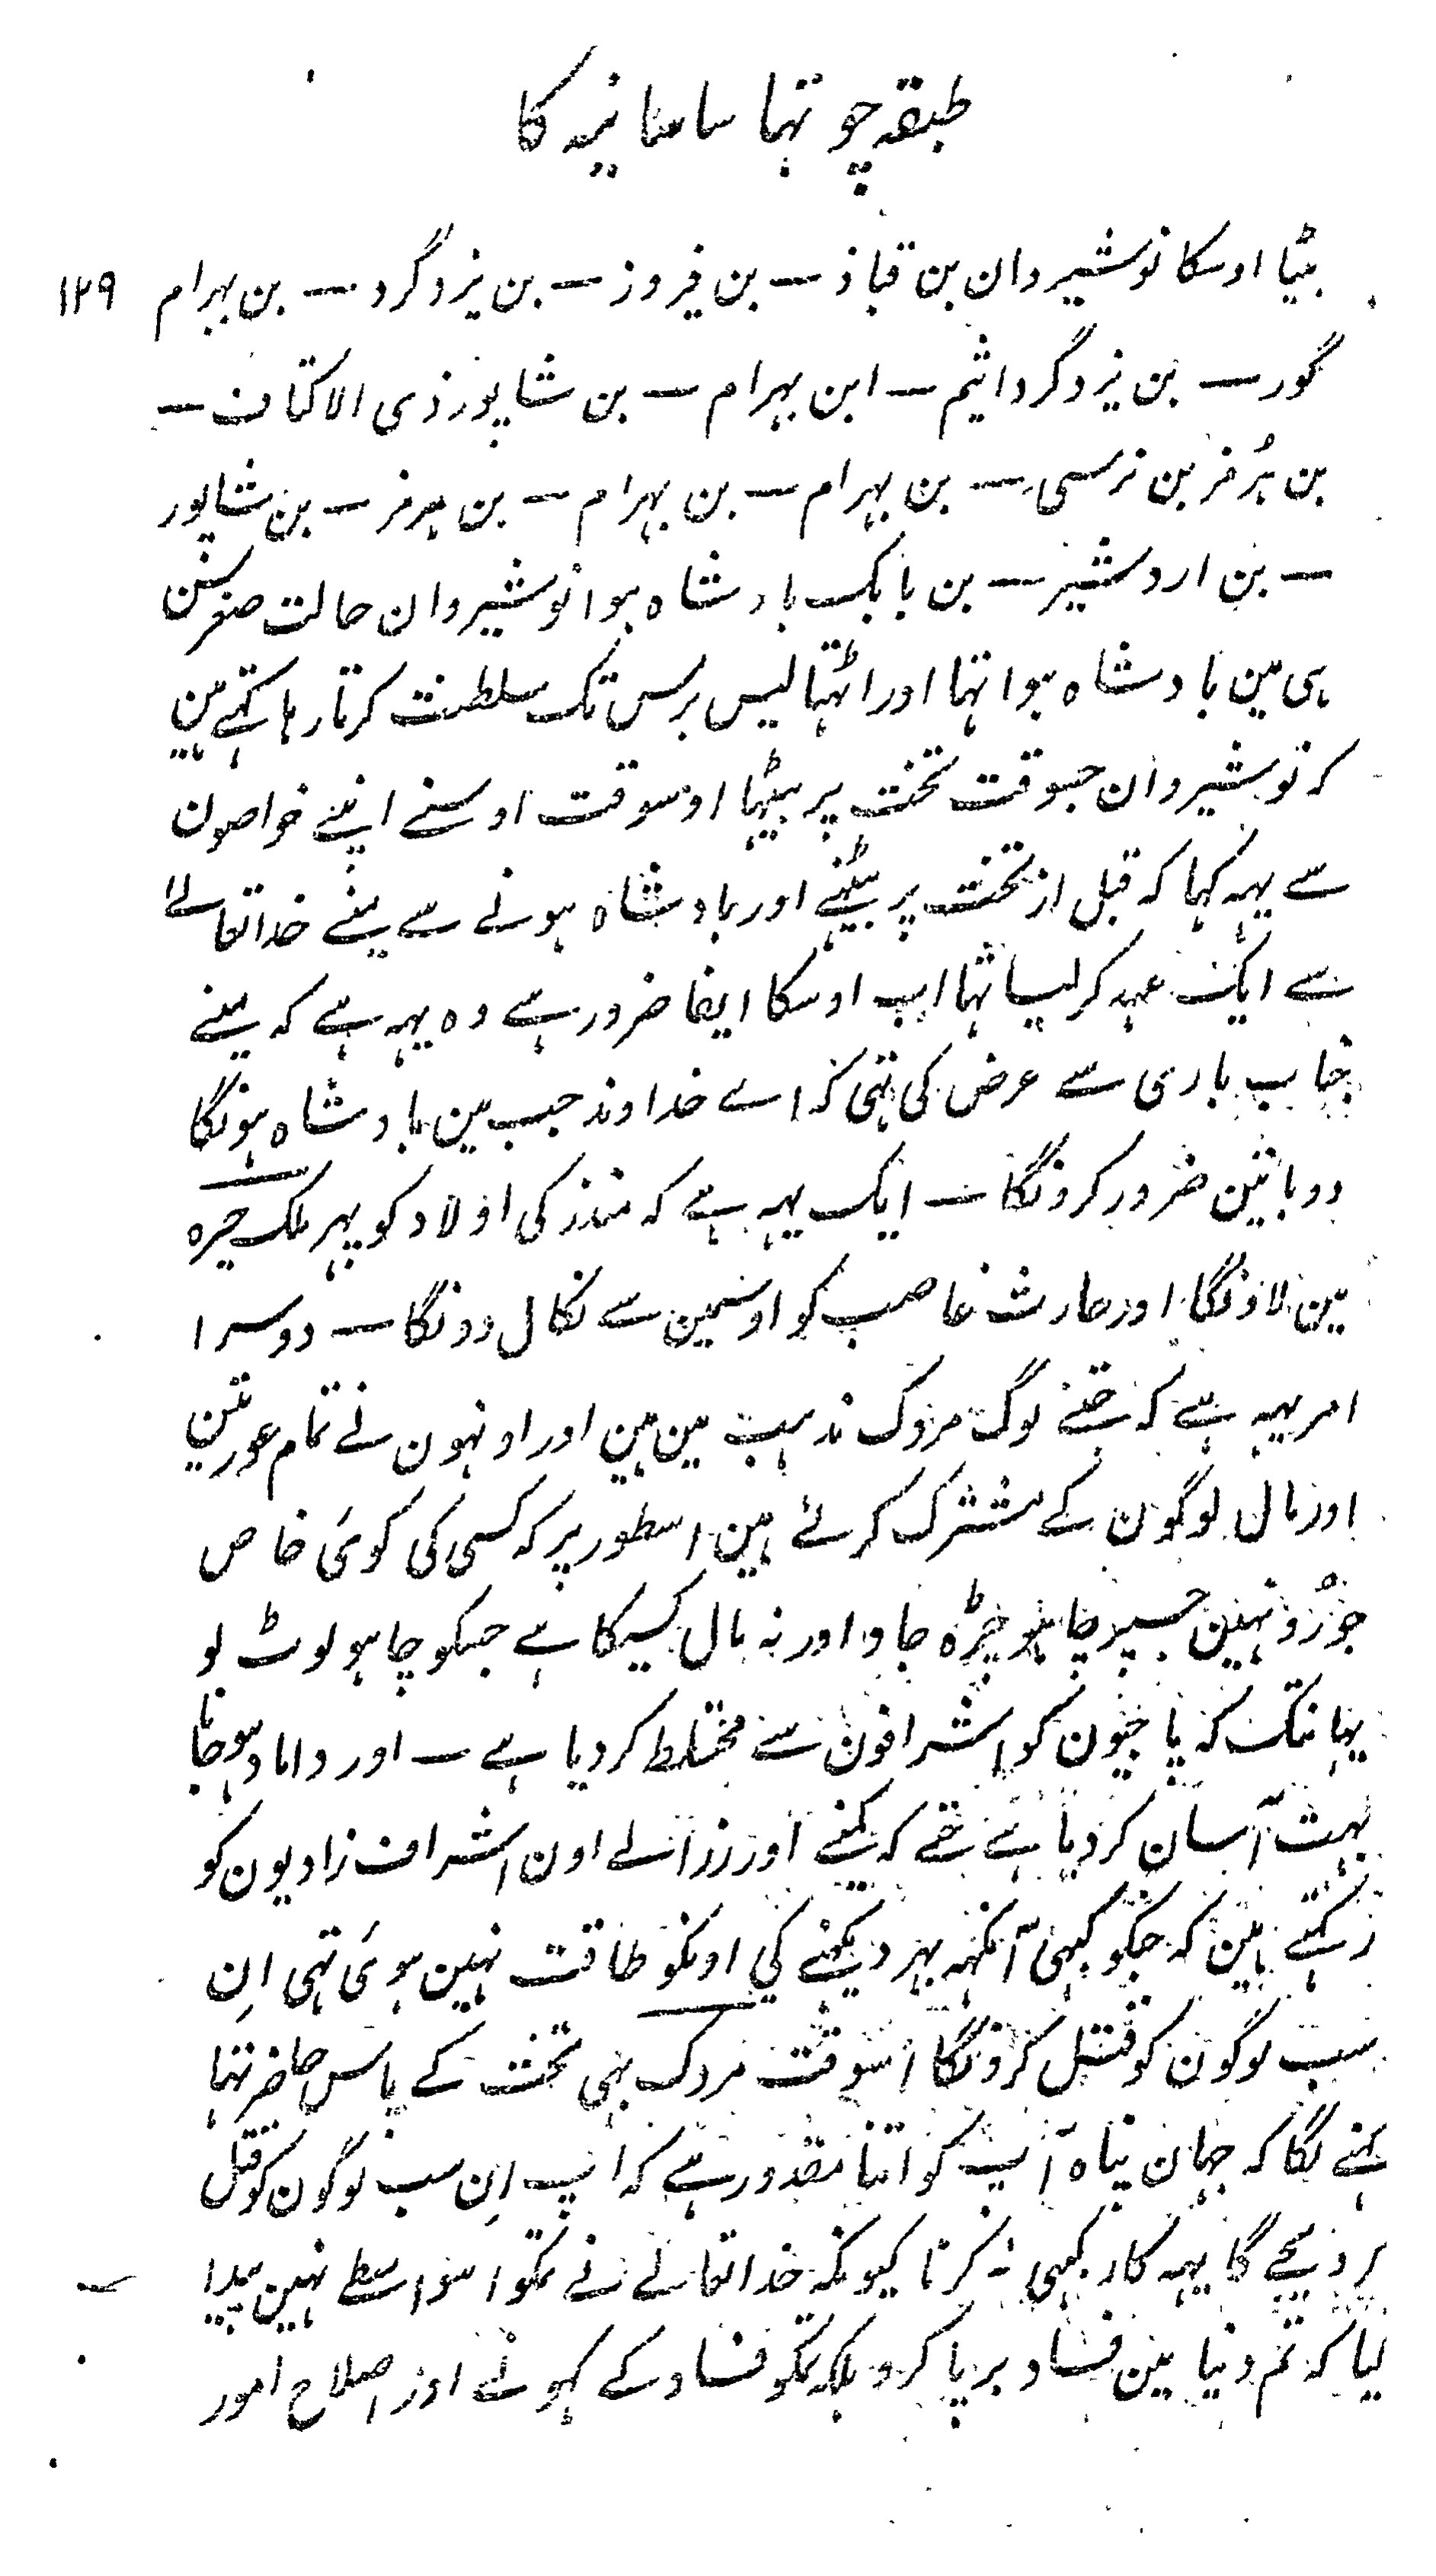 طبقہ چوتہا ساسانیہ کا
بیٹا اوسکا نوشیروان بن قباذ — بن فیروز — بن یزدگرد — بن بہرام ۱۲۹
گور — بن یزدگرد اثیم — ابن بہرام — بن شاپور ذی الاکتاف —
بن ہُرمز بن نرسی — بن بہرام — بن بہرام — بن ہرمز — بن شاپور
— بن اردشیر — بن بابک بادشاہ ہوا نوشیروان حالت صغرسن
ہی مین بادشاہ ہوا تہا اور اٹہتالیس برس تک سلطنت کرتا رہا کہتے ہین
کہ نوشیروان جسوقت تخت پر بیٹہا اوسوقت اوسنے اپنے خواصون
سے یہہ کہا کہ قبل از تخت پر بیٹہنے اور بادشاہ ہونے سے مینے خداتعالے
سے ایک عہد کر لیا تہا اب اوسکا ایفا ضرور ہے وہ یہہ ہے کہ مینے
جناب باری سے عرض کی تہی کہ اے خداوند جب مین بادشاہ ہونگا
دو باتین ضرور کرونگا — ایک یہہ ہے کہ منذر کی اولاد کو پہر ملک حیرہ
مین لاؤنگا اور حارث غاصب کو اوسمین سے نکال دونگا — دوسرا
امر یہہ ہے کہ جتنے لوگ مزدک مذہب مین ہین اور اونہون نے تمام عورتین
اور مال لوگون کے مشترک کرلئے ہین اسطور پر کہ کسی کی کوئی خاص
جورُو نہین جسپر چاہو چڑہ جاو اور نہ مال کسیکا ہے جسکو چاہو لوٹ لو
یہانتک کہ پاجیون کو اشرافون سے مختلط کردیا ہے — اور داماد ہوجانا
بہت آسان کردیا ہے حتے کہ کمینے اور رزالے اون اشراف زادیون کو
رکہتے ہین کہ جنکو کبہی آنکہہ بہر دیکہنے کی اونکو طاقت نہین ہوئی تہی اِن
سب لوگون کو قتل کرونگا اسوقت مزدک بہی تخت کے پاس حاضر تہا
کہنے لگا کہ جہان پناہ آپ کو اتنا مقدور ہے کہ آپ اِن سب لوگون کو قتل
کردیجے گا یہہ کار کبہی نہ کرنا کیونکہ خداتعالے نے تمکو اسواسطے نہین پیدا
کیا کہ تم دنیا مین فساد برپا کرو بلکہ تمکو فساد کے کہونے اور اصلاح امور